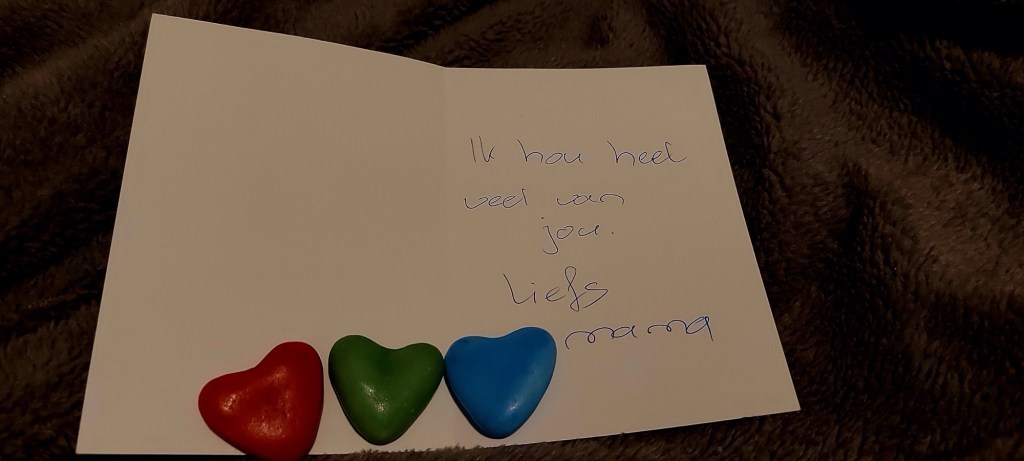 Ik hou heel
veel van
jou.
Liefs
mama